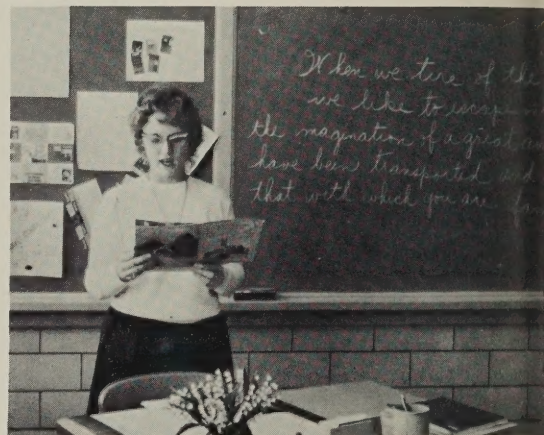 When we tire of the
we like to escape
the magination of a great
have been transported and
that with which you are